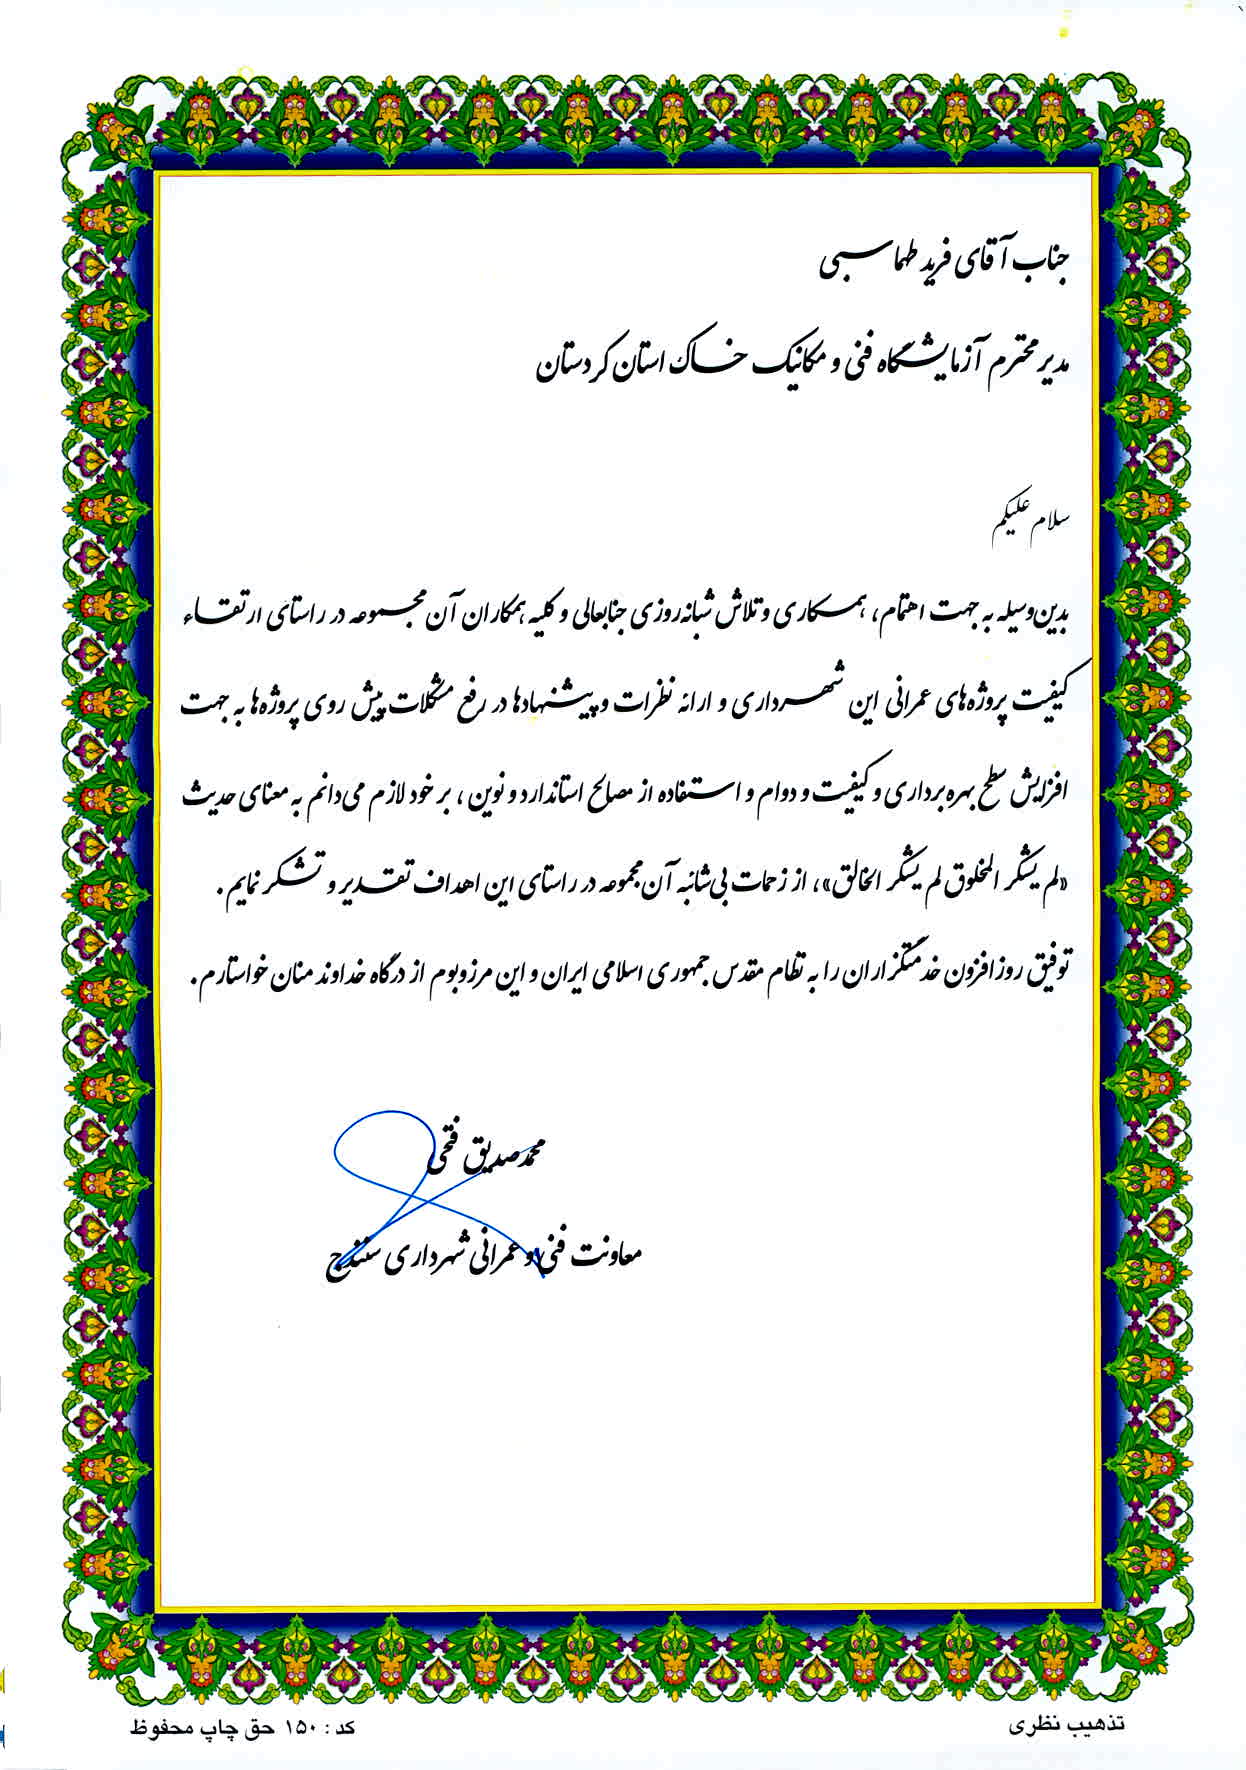 جناب آقای فرید طهماسبی
مدیر محترم آزمایشگاه فنی و مکانیک خاک استان کردستان
سلام علیکم
بدین‌وسیله به جهت اهتمام، همکاری و تلاش شبانه‌روزی جنابعالی و کلیه همکاران آن مجموعه در راستای ارتقاء
کیفیت پروژه‌های عمرانی این شهرداری و ارائه نظرات و پیشنهادها در رفع مشکلات پیش روی پروژه‌ها به جهت
افزایش سطح بهره‌برداری و کیفیت و دوام و استفاده از مصالح استاندارد و نوین، بر خود لازم می‌دانم به معنای حدیث
«لم یشکر المخلوق لم یشکر الخالق»، از زحمات بی‌شائبه آن مجموعه در راستای این اهداف تقدیر و تشکر نمایم.
توفیق روزافزون خدمتگزاران را به نظام مقدس جمهوری اسلامی ایران و این مرزوبوم از درگاه خداوند منان خواستارم.
محمدصدیق فتحی
معاونت فنی و عمرانی شهرداری سنندج
تذهیب نظری
کد : ۱۵۰ حق چاپ محفوظ